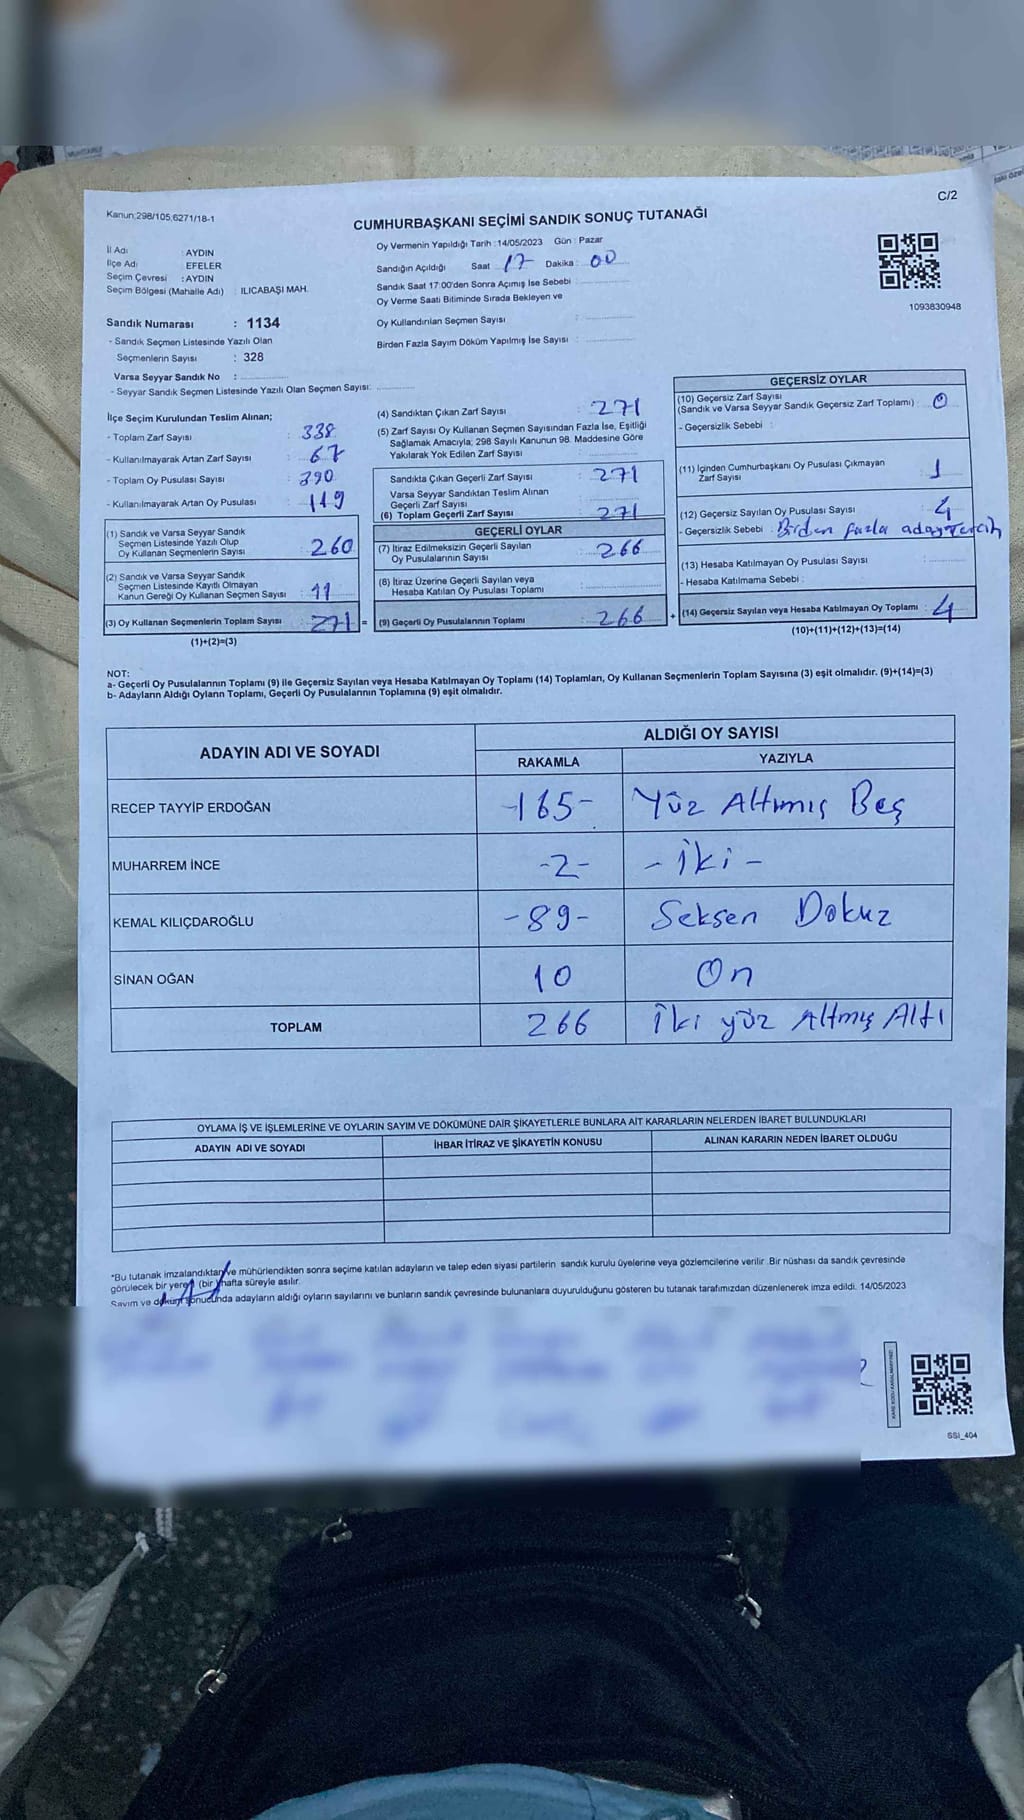 C/2
Kanun:298/105,6271/18-1
CUMHURBAŞKANI SEÇİMİ SANDIK SONUÇ TUTANAĞI
İl Adı : AYDIN
İlçe Adı : EFELER
Seçim Çevresi : AYDIN
Seçim Bölgesi (Mahalle Adı) : ILICABAŞI MAH.
Oy Vermenin Yapıldığı Tarih :14/05/2023 Gün : Pazar
Sandığın Açıldığı Saat 17 Dakika : 00
Sandık Saat 17:00'den Sonra Açımış İse Sebebi
Oy Verme Saati Bitiminde Sırada Bekleyen ve
Oy Kullandırılan Seçmen Sayısı :
Birden Fazla Sayım Döküm Yapılmış İse Sayısı :
1093830948
Sandık Numarası : 1134
- Sandık Seçmen Listesinde Yazılı Olan
Seçmenlerin Sayısı : 328
Varsa Seyyar Sandık No :
- Seyyar Sandık Seçmen Listesinde Yazılı Olan Seçmen Sayısı:
İlçe Seçim Kurulundan Teslim Alınan;
- Toplam Zarf Sayısı : 338
- Kullanılmayarak Artan Zarf Sayısı : 67
- Toplam Oy Pusulası Sayısı : 390
- Kullanılmayarak Artan Oy Pusulası : 119
(1) Sandık ve Varsa Seyyar Sandık
Seçmen Listesinde Yazılı Olup
Oy Kullanan Seçmenlerin Sayısı : 260
(2) Sandık ve Varsa Seyyar Sandık
Seçmen Listesinde Kayıtlı Olmayan
Kanun Gereği Oy Kullanan Seçmen Sayısı : 11
(3) Oy Kullanan Seçmenlerin Toplam Sayısı : 271 =
(1)+(2)=(3)
(4) Sandıktan Çıkan Zarf Sayısı : 271
(5) Zarf Sayısı Oy Kullanan Seçmen Sayısından Fazla İse, Eşitliği
Sağlamak Amacıyla; 298 Sayılı Kanunun 98. Maddesine Göre
Yakılarak Yok Edilen Zarf Sayısı :
Sandıkta Çıkan Geçerli Zarf Sayısı : 271
Varsa Seyyar Sandıktan Teslim Alınan
Geçerli Zarf Sayısı
(6) Toplam Geçerli Zarf Sayısı : 271
GEÇERLİ OYLAR
(7) İtiraz Edilmeksizin Geçerli Sayılan
Oy Pusulalarının Sayısı : 266
(8) İtiraz Üzerine Geçerli Sayılan veya
Hesaba Katılan Oy Pusulası Toplamı :
(9) Geçerli Oy Pusulalarının Toplamı : 266 +
GEÇERSİZ OYLAR
(10) Geçersiz Zarf Sayısı
(Sandık ve Varsa Seyyar Sandık Geçersiz Zarf Toplamı) : 0
- Geçersizlik Sebebi :
(11) İçinden Cumhurbaşkanı Oy Pusulası Çıkmayan
Zarf Sayısı : 1
(12) Geçersiz Sayılan Oy Pusulası Sayısı : 4
- Geçersizlik Sebebi : Birden fazla aday Tercih
(13) Hesaba Katılmayan Oy Pusulası Sayısı :
- Hesaba Katılmama Sebebi :
(14) Geçersiz Sayılan veya Hesaba Katılmayan Oy Toplamı : 4
(10)+(11)+(12)+(13)=(14)
NOT:
a- Geçerli Oy Pusulalarının Toplamı (9) ile Geçersiz Sayılan veya Hesaba Katılmayan Oy Toplamı (14) Toplamları, Oy Kullanan Seçmenlerin Toplam Sayısına (3) eşit olmalıdır. (9)+(14)=(3)
b- Adayların Aldığı Oyların Toplamı, Geçerli Oy Pusulalarının Toplamına (9) eşit olmalıdır.
ADAYIN ADI VE SOYADI
ALDIĞI OY SAYISI
RAKAMLA YAZIYLA
RECEP TAYYİP ERDOĞAN -165- Yüz Altımış Beş
MUHARREM İNCE -2- - İki -
KEMAL KILIÇDAROĞLU -89- Seksen Dokuz
SİNAN OĞAN 10 On
TOPLAM 266 İki yüz Altmış Altı
OYLAMA İŞ VE İŞLEMLERİNE VE OYLARIN SAYIM VE DÖKÜMÜNE DAİR ŞİKAYETLERLE BUNLARA AİT KARARLARIN NELERDEN İBARET BULUNDUKLARI
ADAYIN ADI VE SOYADI İHBAR İTİRAZ VE ŞİKAYETİN KONUSU ALINAN KARARIN NEDEN İBARET OLDUĞU
*Bu tutanak imzalandıktan ve mühürlendikten sonra seçime katılan adayların ve talep eden siyasi partilerin sandık kurulu üyelerine veya gözlemcilerine verilir. Bir nüshası da sandık çevresinde
görülecek bir yere 1 (bir) hafta süreyle asılır.
Sayım ve döküm sonucunda adayların aldığı oyların sayılarını ve bunların sandık çevresinde bulunanlara duyurulduğunu gösteren bu tutanak tarafımızdan düzenlenerek imza edildi. 14/05/2023
SSI_404